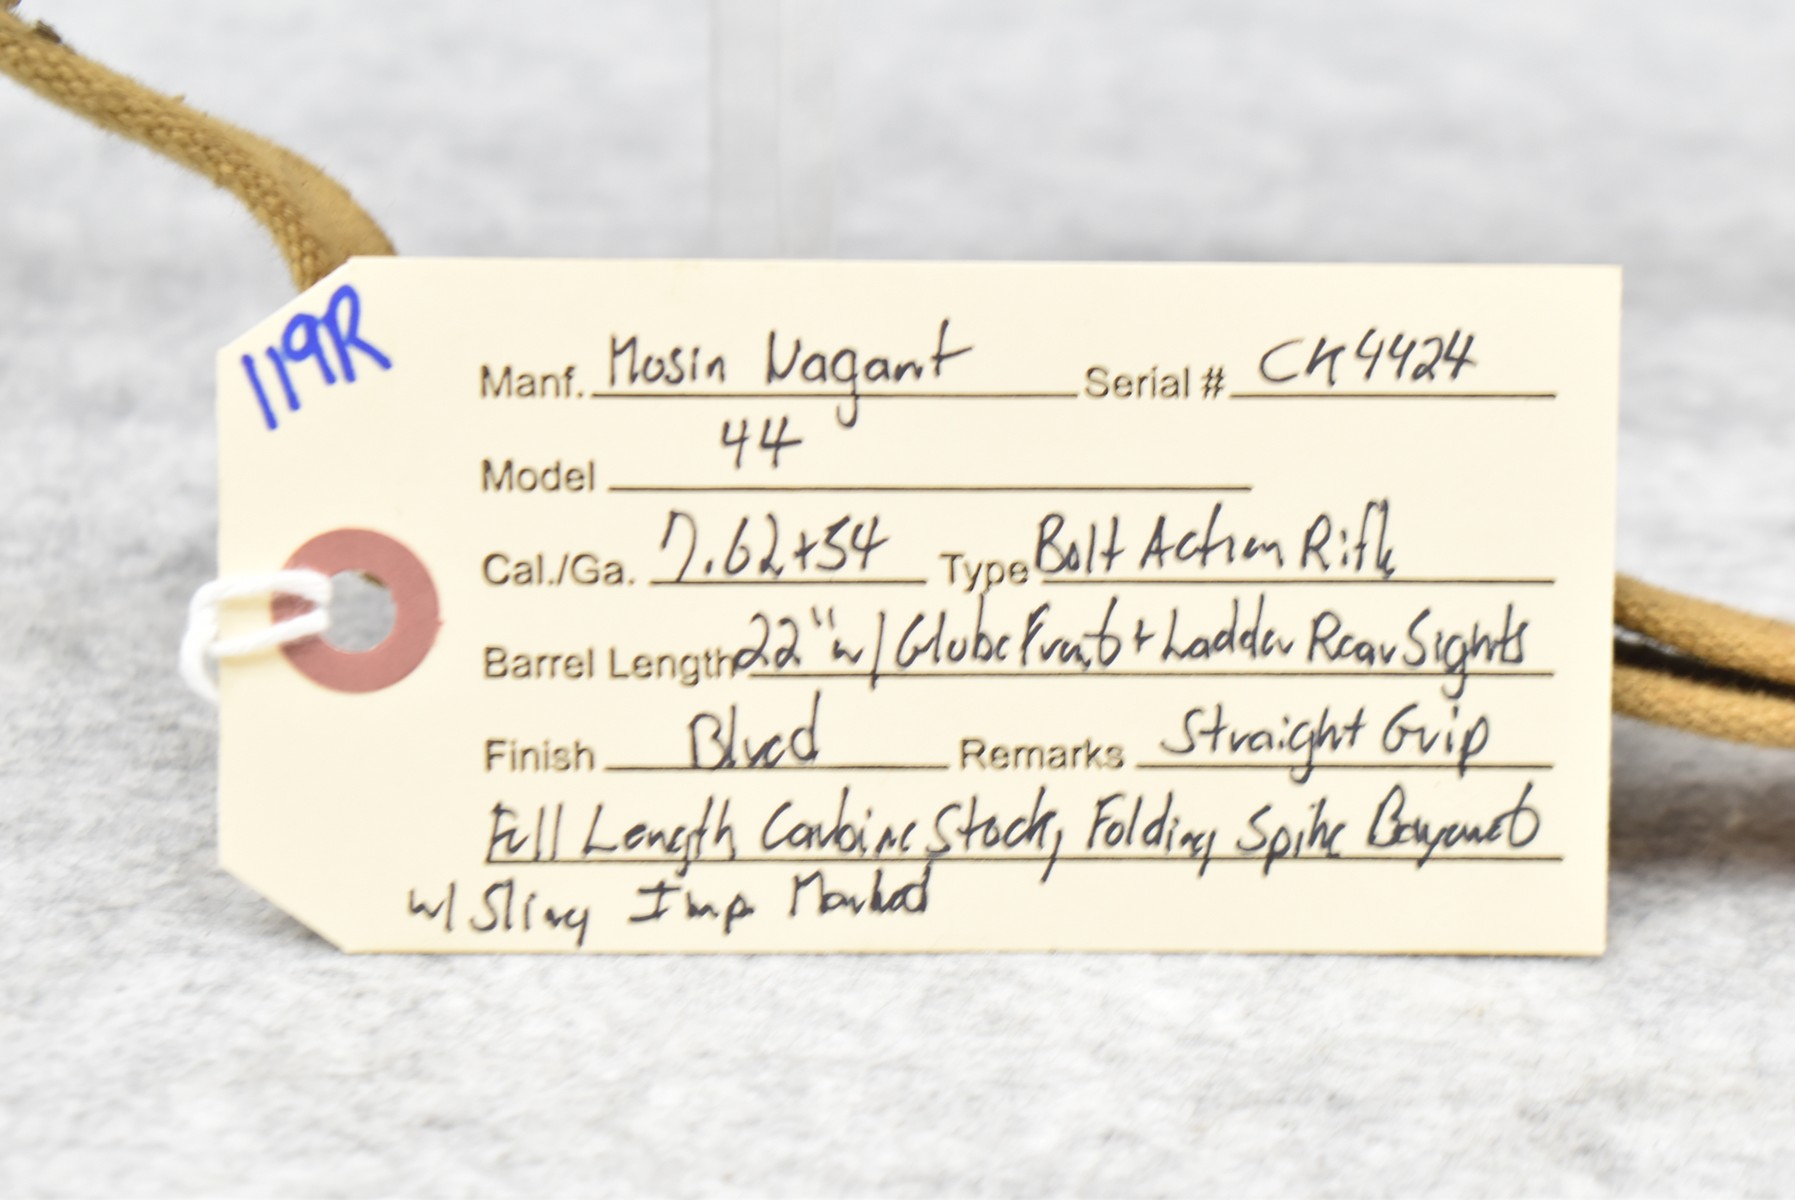 119R
Manf. Mosin Nagant Serial # CK4424
Model 44
Cal./Ga. 7.62+54 Type Bolt Action Rifle
Barrel Length 22" w/ Globe Front + Ladder Rear Sights
Finish Blued Remarks Straight Grip
Full Length Carbine Stock, Folding Spike Bayonet
w/ Sling Imp Marked